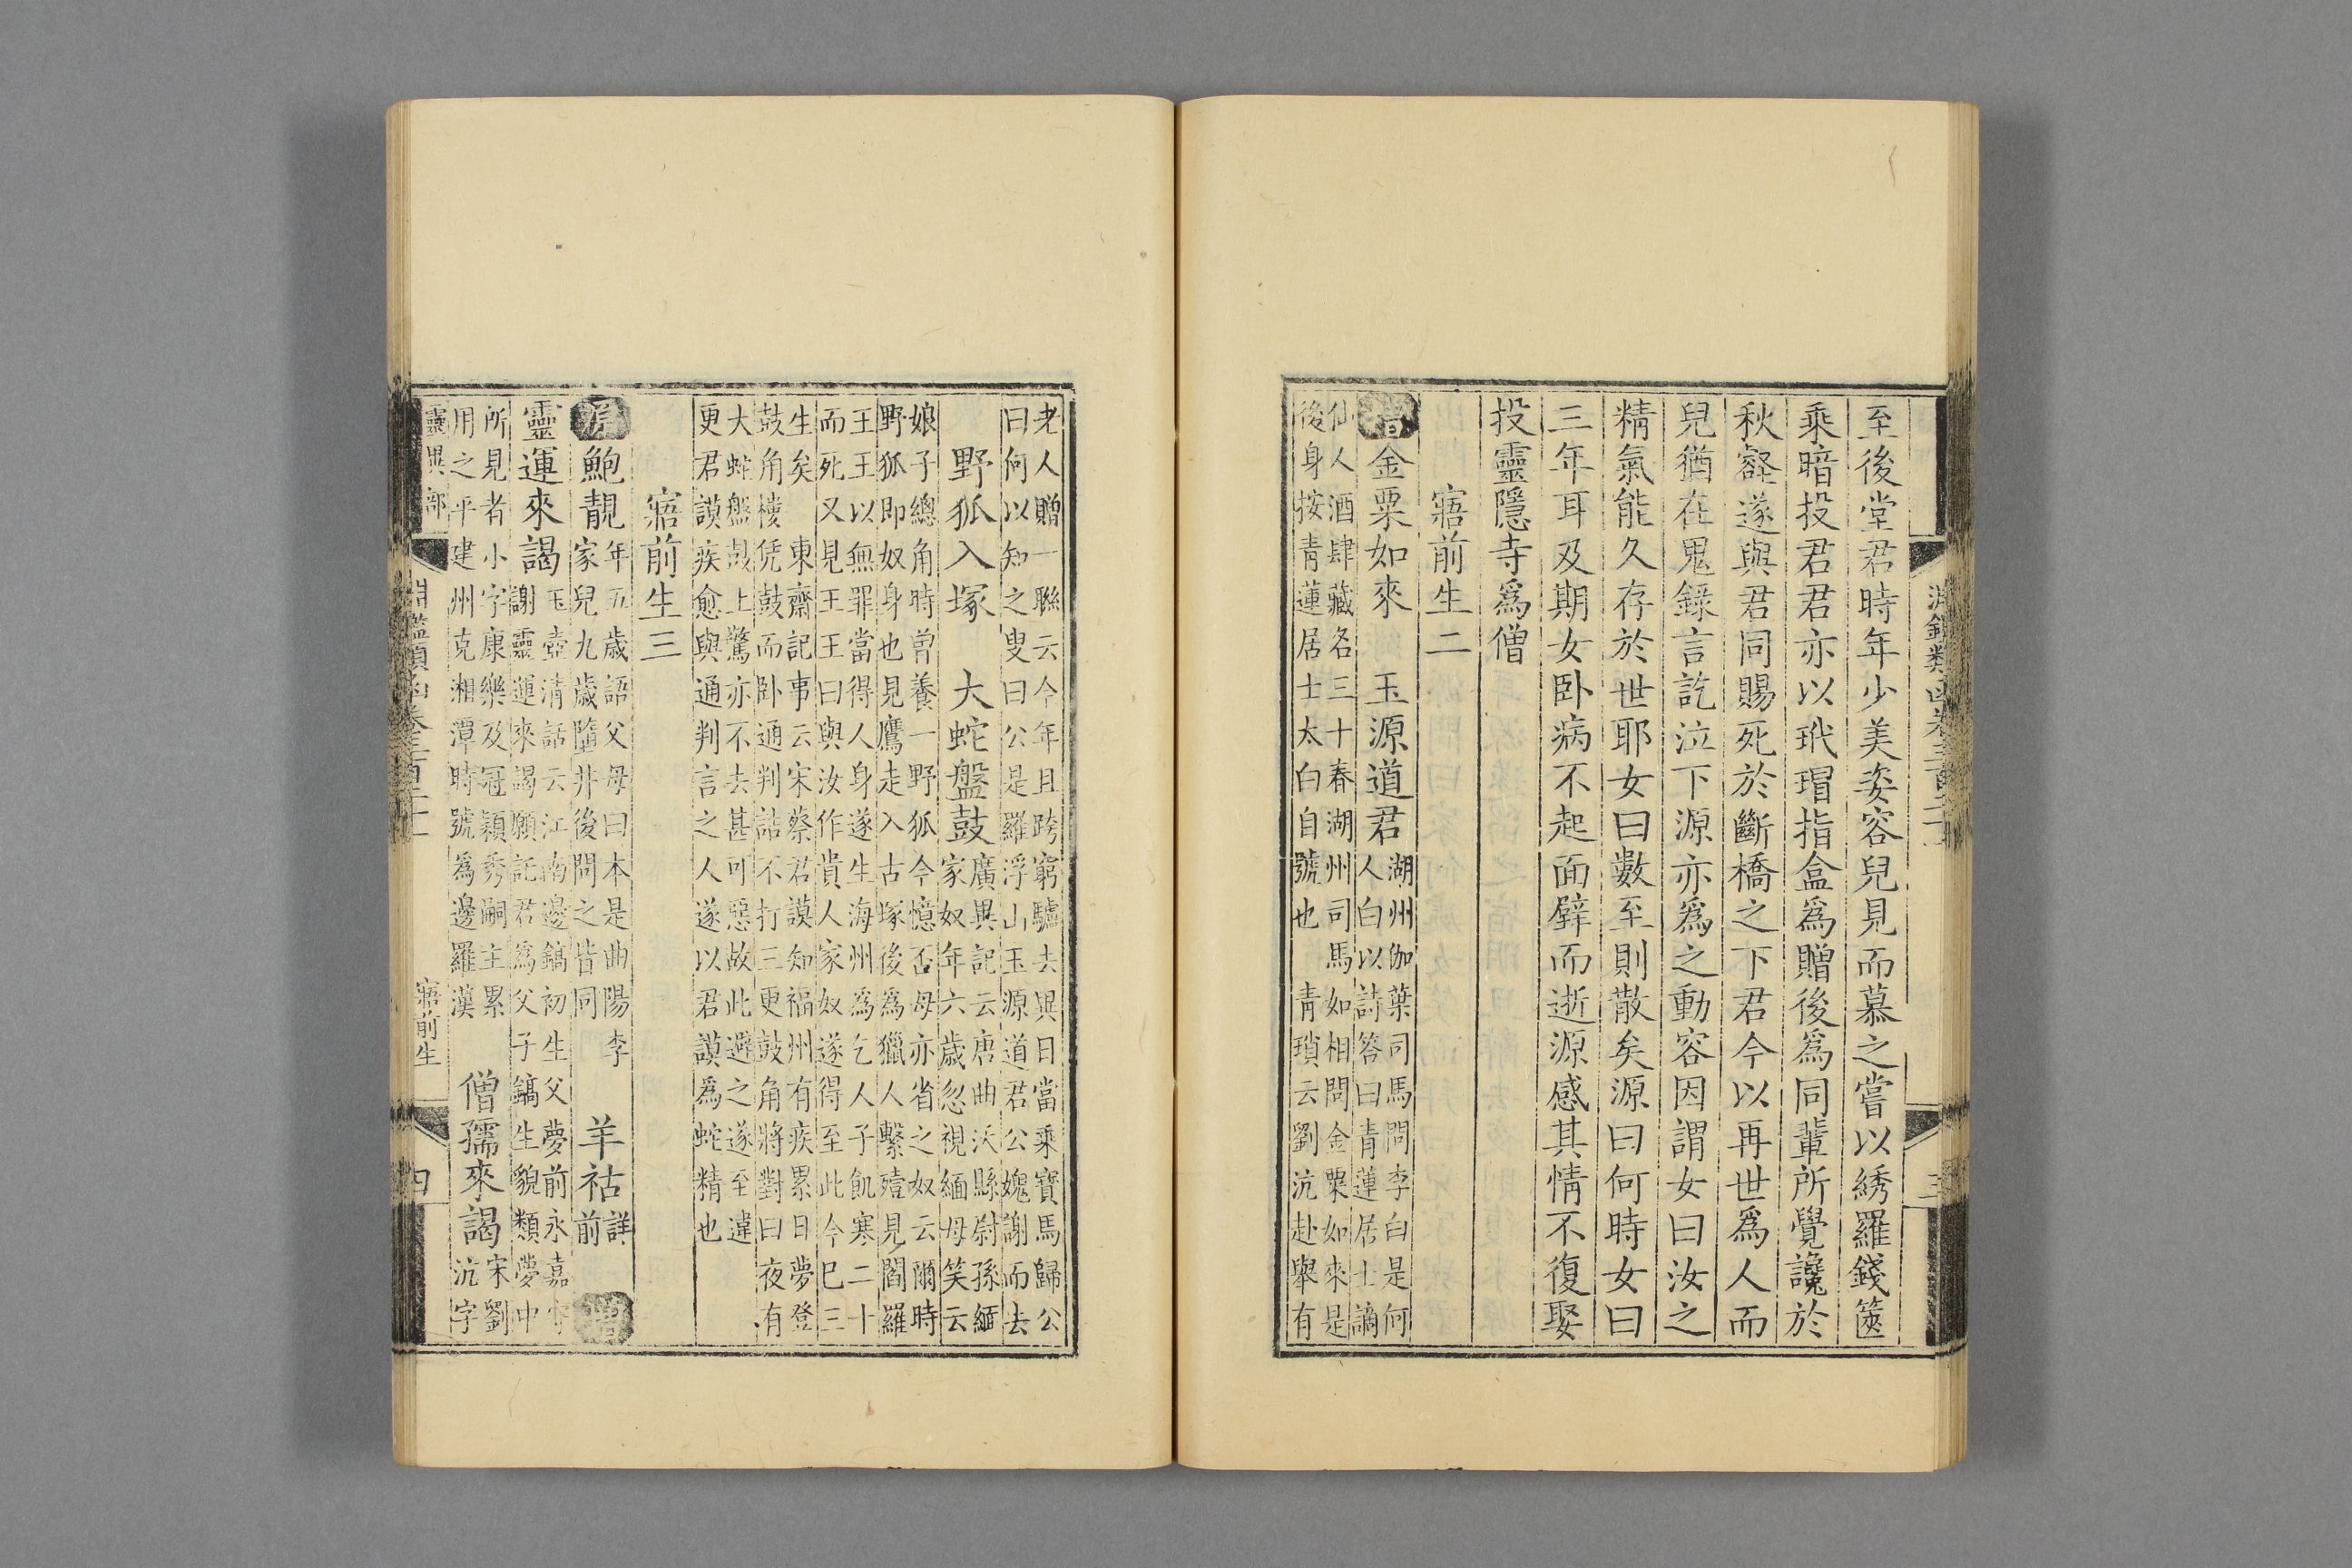 淵鑑類函卷三百二十
三
至後堂君時年少美姿容兒見而慕之嘗以綉羅錢篋
乘暗投君君亦以玳瑁指盒爲贈後爲同輩所覺讒於
秋壑遂與君同賜死於斷橋之下君今以再世爲人而
兒猶在鬼錄言訖泣下源亦爲之動容因謂女曰汝之
精氣能久存於世耶女曰數至則散矣源曰何時女曰
三年耳及期女卧病不起面壁而逝源感其情不復娶
投靈隱寺爲僧
寤前生二
增金粟如來 玉源道君
湖州伽葉司馬問李白是何
人白以詩答曰青蓮居士謫
仙人酒肆藏名三十春湖州司馬如相問金粟如來是
後身按青蓮居士太白自號也 青瑣云劉沆赴舉有
老人贈一聯云今年且跨窮驢去異日當乘寶馬歸公
曰何以知之叟曰公是羅浮山玉源道君公媿謝而去
野狐入塚 大蛇盤鼓
廣異記云唐曲沃縣尉孫緬
家奴年六歲忽視緬母笑云
娘子總角時曾養一野狐今憶否母亦省之奴云爾時
野狐即奴身也見鷹走入古塚後爲獵人擊殪見閻羅
王王以無罪當得人身遂生海州爲乞人子飢寒二十
而死又見王王曰與汝作貴人家奴遂得至此今巳三
生矣 東齋記事云宋蔡君謨知福州有疾累日夢登
鼓角樓凭鼓而卧通判詰不打三更鼓角將對曰夜有
大蛇盤鼓上驚亦不去甚可惡故此避之遂至違
更君謨疾愈與通判言之人遂以君謨爲蛇精也
寤前生三
原鮑靚
年五歲語父母曰本是曲陽李
家兒九歲墮井後問之皆同
羊祜
詳
前
增
靈運來謁
玉壺清話云江南邊鎬初生父夢前永嘉守
謝靈運來謁願託君爲父子鎬生貌類夢中
所見者小字康樂及冠穎秀嗣主累
用之平建州克湘潭時號爲邊羅漢
僧孺來謁
宋劉
沆字
靈異部
淵鑑類函卷三百二十
寤前生
四